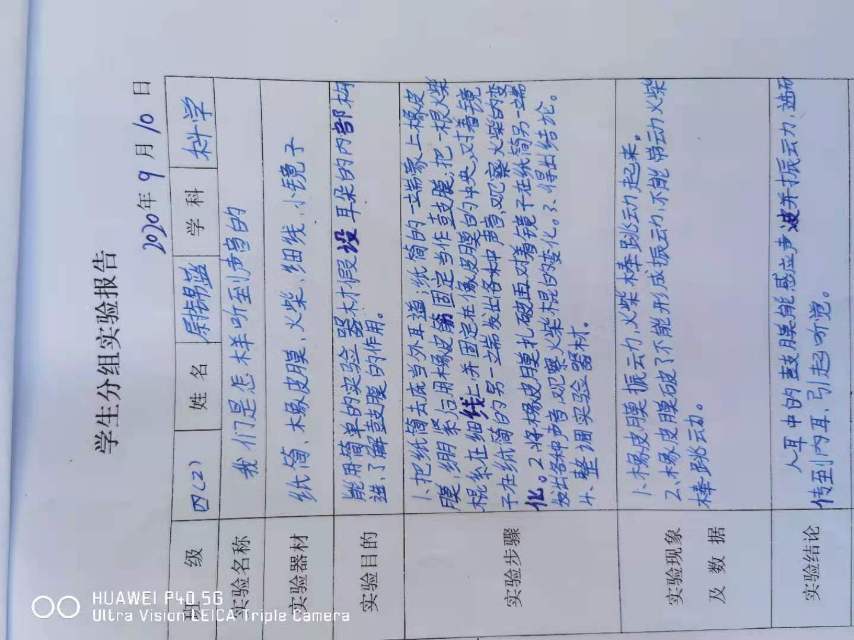 学生分组实验报告
2020年9月10日
班级 四(2) 姓名 学科 科学
实验名称 我们是怎样听到声音的
实验器材 纸筒、橡皮膜、火柴、细线、小镜子
实验目的 能用简单的实验器材假设耳朵的内部构
造,了解鼓膜的作用。
实验步骤 1、把纸筒去底当外耳道,纸筒的一端蒙上橡皮
膜,绷紧后用橡皮筋固定当作鼓膜,把一根火柴
棍系在细线上并固定在像皮膜的中央,对着镜
子在纸筒的另一端发出各种声音,观察火柴的变
化。2、将橡皮膜扎破,面对着镜子在纸筒另一端
发出各种声音,观察火柴棍的变化。3、得出结论。
4、整理实验器材。
实验现象
及数据
1、橡皮膜振动,火柴棒跳动起来。
2、橡皮膜破了不能形成振动,不能带动火柴
棒跳动。
实验结论 人耳中的鼓膜能感应声波并振动,进而
传到内耳,引起听觉。
HUAWEI P40 5G
Ultra Vision LEICA Triple Camera